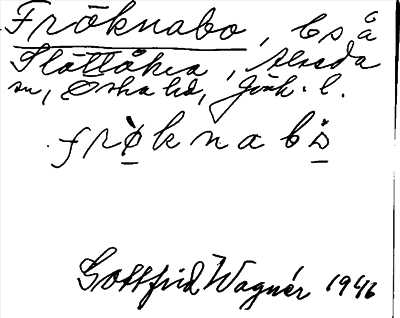 Fröknabo, bs å
Slättåkra, Alseda
sn, Östra hd, Jönk. l.
frö̀knabɷ̀
Gottfrid Wagnér 1946